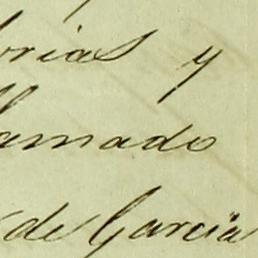 orias y
llamado
de Garcia